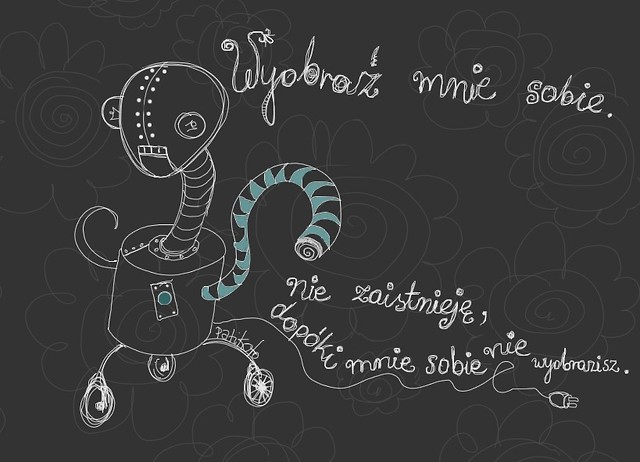 Wyobraź mnie sobie.
nie zaistnieję,
dopóki mnie sobie nie wyobrazisz.
patikolo